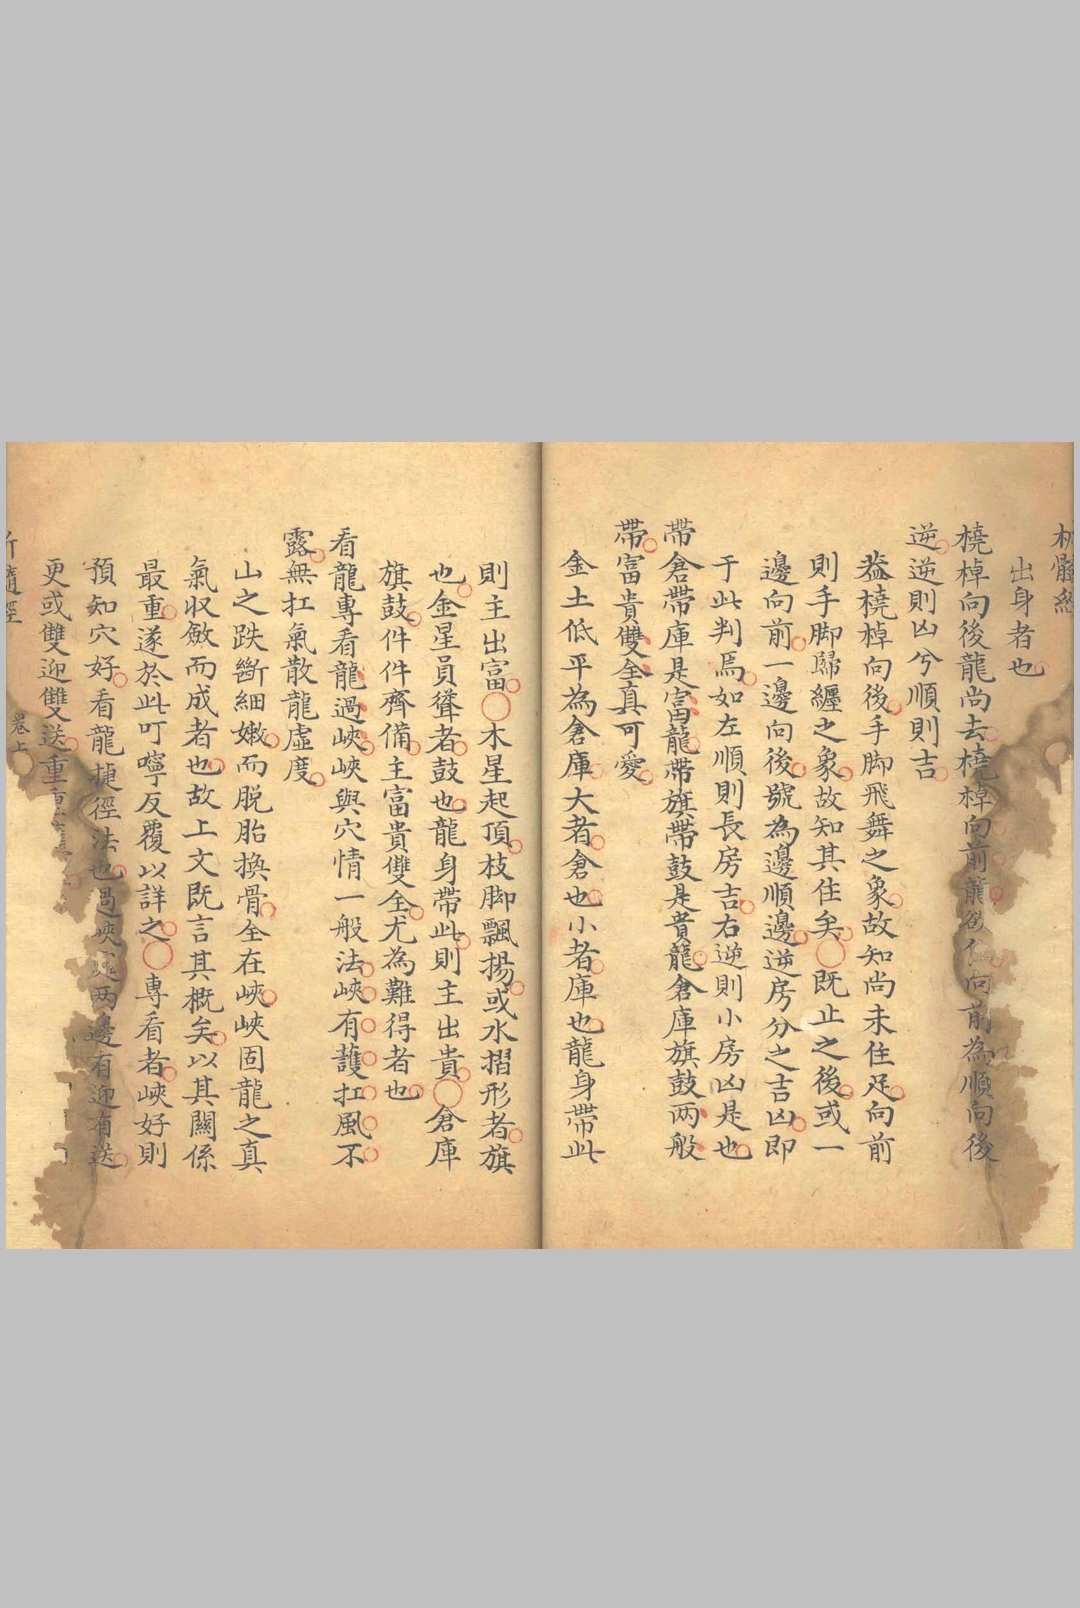 出身者也
橈棹向後龍尚去橈棹向前龍欲住向前為順向後
逆逆則凶兮順則吉
葢橈棹向後手脚飛舞之象故知尚未住足向前
則手脚歸纏之象故知其住矣〇既止之後或一
邊向前一邊向後號為邊順邊逆房分之吉凶即
于此判焉如左順則長房吉右逆則小房凶是也
帶倉帶庫是富龍帶旗帶鼓是貴龍倉庫旗鼓两般
帶富貴雙全真可愛
金土低平為倉庫大者倉也小者庫也龍身帶此
則主出富〇木星起頂枝脚飄揚或水摺形者旗
也金星員聳者鼓也龍身帶此則主出貴〇倉庫
旗鼓件件齊備主富貴雙全尤為難得者也
看龍專看龍過峽峽與穴情一般法峽有護扛風不
露無扛氣散龍虛度
山之跌斷細嫩而脱胎換骨全在峽峽固龍之真
氣収斂而成者也故上文既言其概矣以其關係
最重遂於此叮嚀反覆以詳之〇專看者峽好則
預知穴好看龍捷徑法也過峽两邊有迎有送
更或雙迎雙送重
卷上